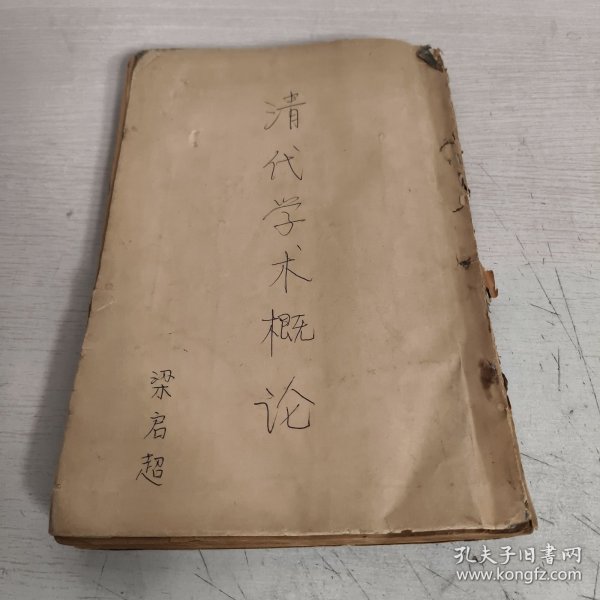 清代学术概论
梁启超
孔夫子旧書网
www.kongfz.com